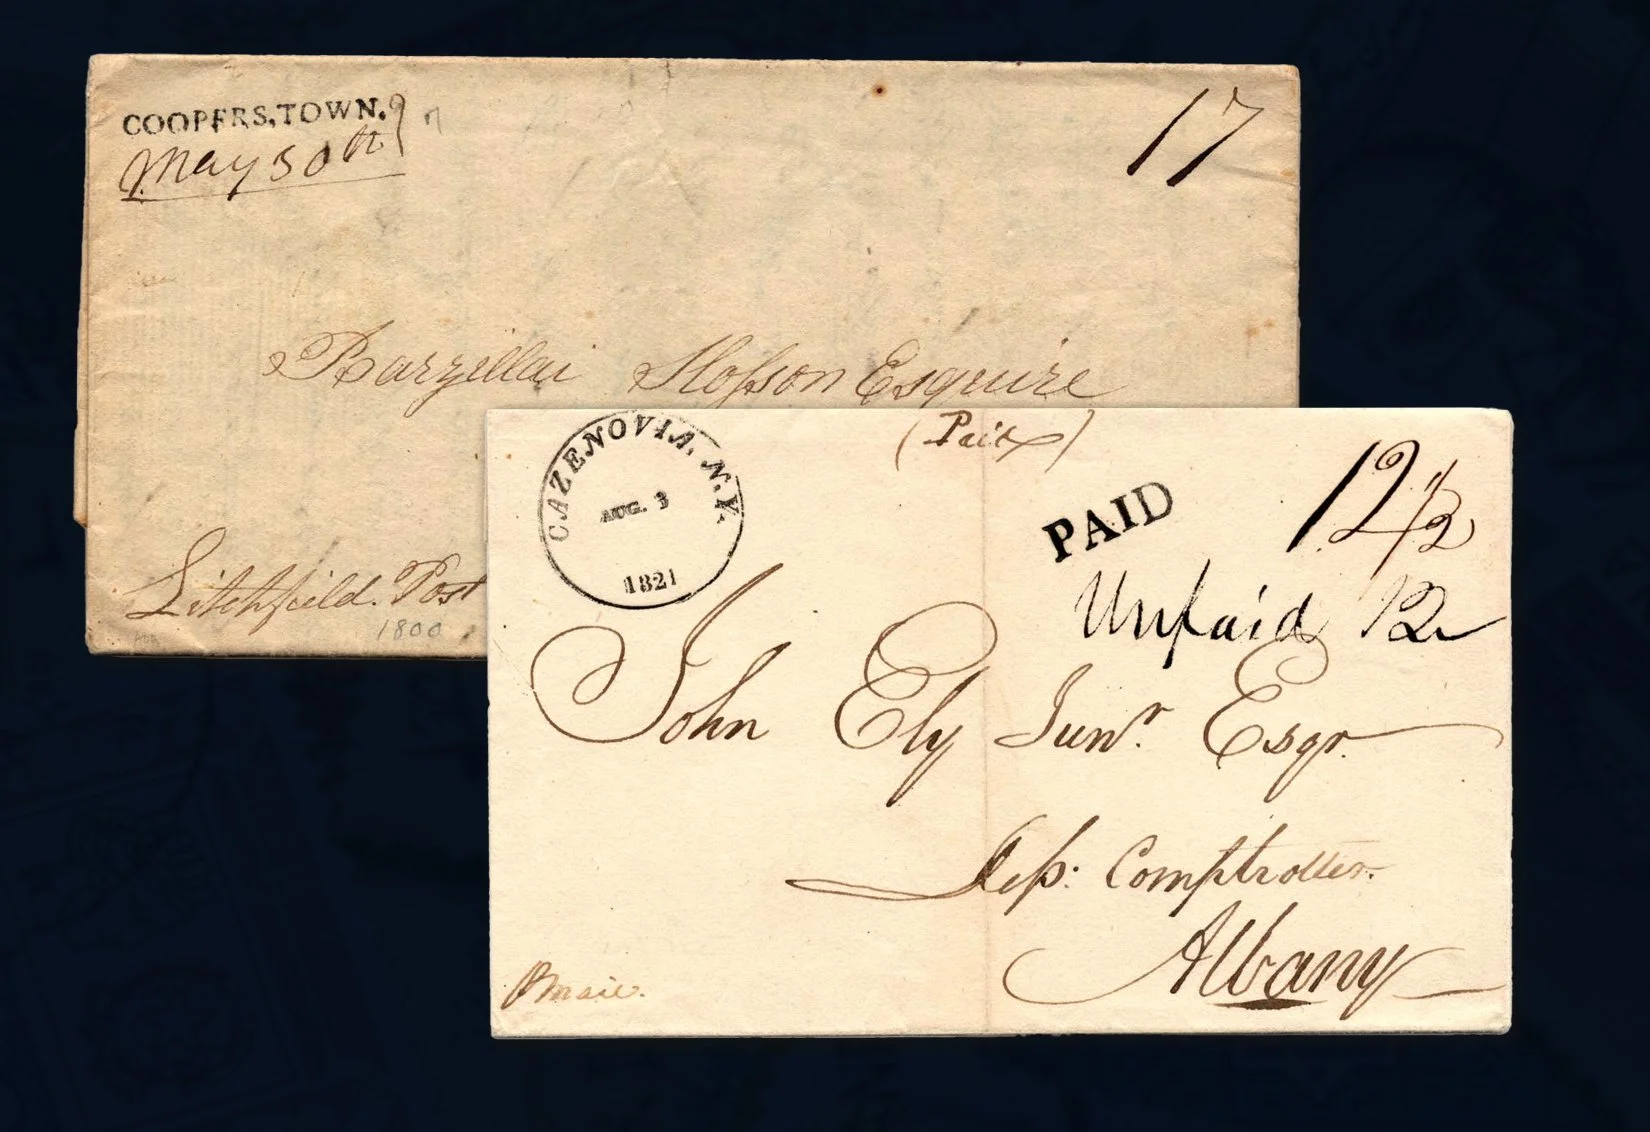 COOPERS.TOWN.
May 30th
17
Barzillai Slosson Esquire
Litchfield. Post
1800
CAZENOVIA, N.Y.
AUG. 3
1821
(Paid)
PAID
12 1/2
Unpaid 12
John Ely Junr. Esqr.
Dep: Comptroller.
Albany